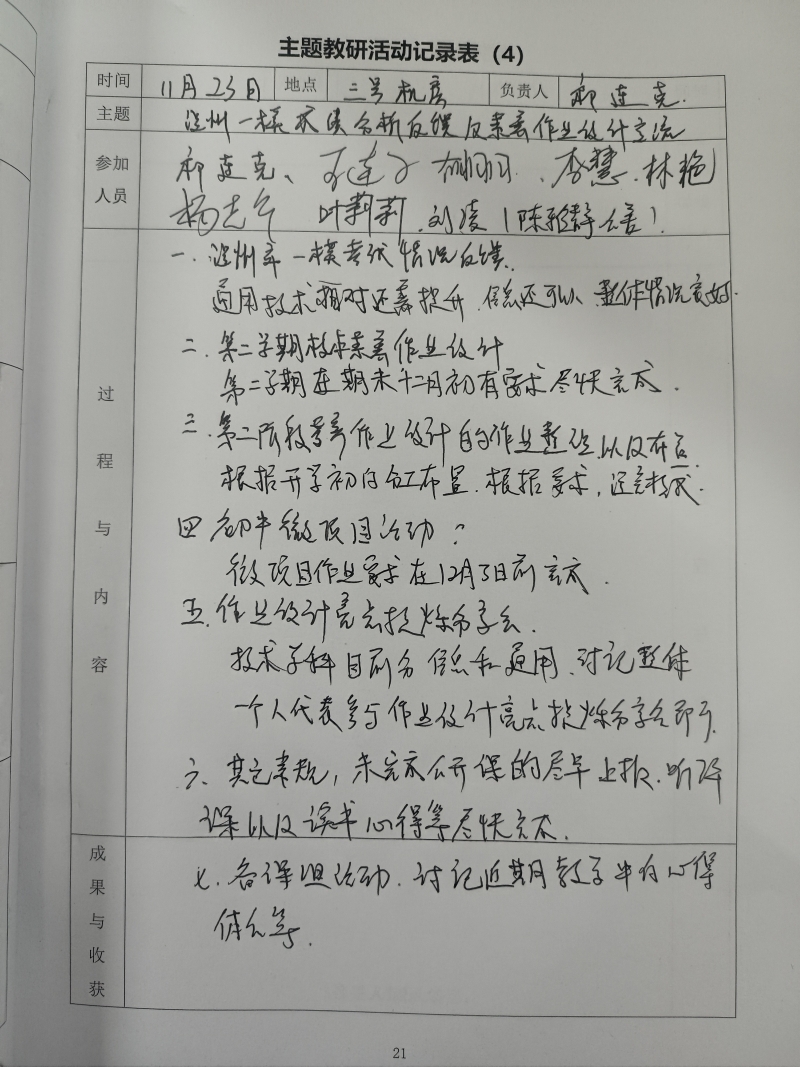 主题教研活动记录表（4）
时间 11月23日 地点 三号机房 负责人 柳连克.
主题 温州一模 分析反馈及寒假作业设计交流
参加 柳连克、 李慧.林艳
人员 杨志 叶莉莉.刘凌（陈雅静 ）
一.温州市一模考试情况反馈.
通用技术相对还需提升.信息还可以、整体情况良好.
二.第二学期技术寒假作业设计
第二学期在期末十二月初有要求尽快完成.
三.第二阶段寒假作业设计的作业整理.以及布
根据开学初分工布置.根据要求,
四 初中微项目活动：
微项目作业要求在12月5日前完成.
五.作业设计亮点提炼分享会.
技术学科目前分信息和通用.讨论整体
一个人代表参与作业设计亮点提炼分享会即可.
六.其它 ,未完成公开课的尽早上报.听评
课以及读书心得等尽快完成.
七.备课组活动.讨论近期教学中的心得
体会等.
过
程
与
内
容
成
果
与
收
获
21